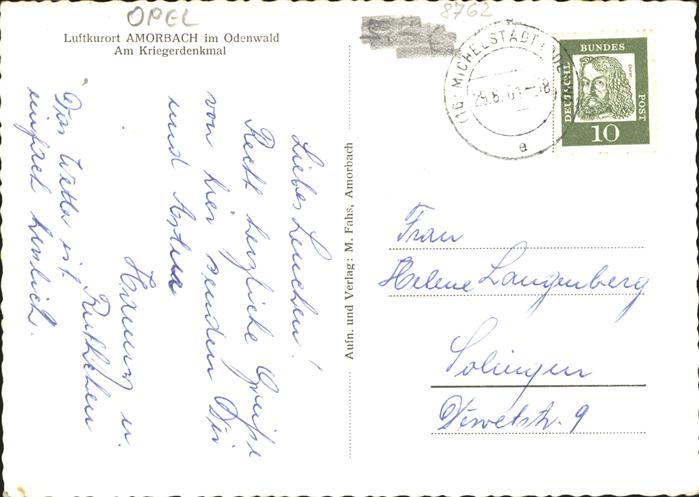 OPEL
8762
Luftkurort AMORBACH im Odenwald
Am Kriegerdenkmal
(16) MICHELSTADT (ODENW)
25.8.61-18
e
DEUTSCHE BUNDES POST
Dürer
10
Aufn. und Verlag: M. Fahs, Amorbach
Frau
Helene Langenberg
Solingen
Dewetstr. 9
Liebes Lenchen!
Recht herzliche Grüße
von hier senden Dir
und Artur
u.
Ruthchen
Das Wetter ist
einfach herrlich.